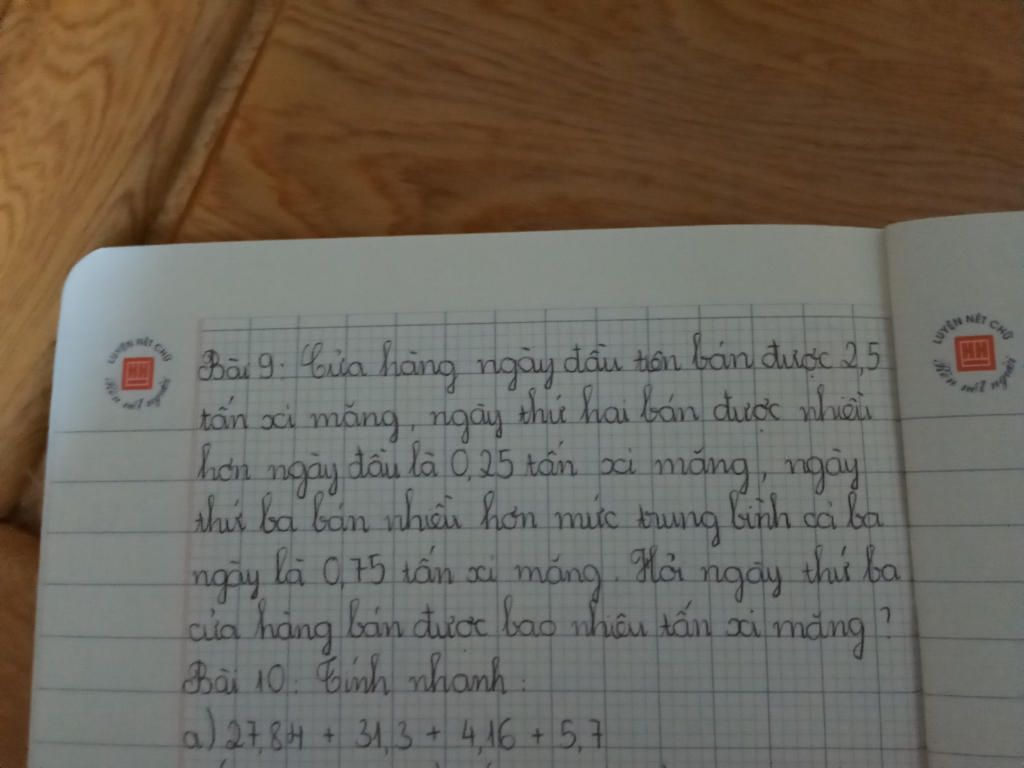 Bài 9: Cửa hàng ngày đầu tên bán được 2,5
tấn xi măng, ngày thứ hai bán được nhiều
hơn ngày đầu là 0,25 tấn xi măng, ngày
thứ ba bán nhiều hơn mức trung bình cả ba
ngày là 0,75 tấn xi măng. Hỏi ngày thứ ba
cửa hàng bán được bao nhiêu tấn xi măng?
Bài 10: Tính nhanh:
a) 27,84 + 31,3 + 4,16 + 5,7
LUYỆN NÉT CHỮ
HH
Rèn nết người
LUYỆN NÉT CHỮ
HH
Rèn nết người